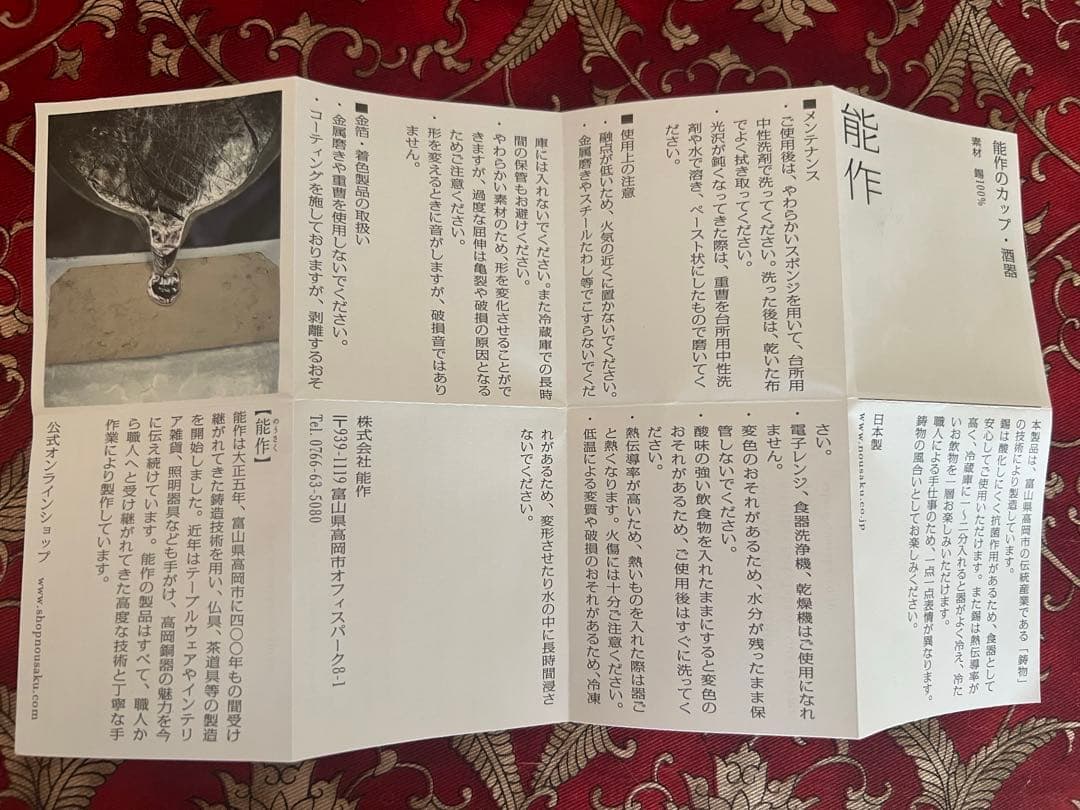 能作
能作のカップ・酒器
素材　錫100%
本製品は、富山県高岡市の伝統産業である「鋳物」
の技術により製造しています。
錫は酸化しにくく抗菌作用があるため、食器として
安心してご使用いただけます。また錫は熱伝導率が
高く、冷蔵庫に一～二分入れると器がよく冷え、冷た
いお飲物を一層お楽しみいただけます。
職人による手仕事のため、一点一点表情が異なります。
鋳物の風合いとしてお楽しみください。
日本製
www.nousaku.co.jp
■メンテナンス
・ご使用後は、やわらかいスポンジを用いて、台所用
中性洗剤で洗ってください。洗った後は、乾いた布
でよく拭き取ってください。
・光沢が鈍くなってきた際は、重曹を台所用中性洗
剤や水で溶き、ペースト状にしたもので磨いてく
ださい。
■使用上の注意
・融点が低いため、火気の近くに置かないでください。
・金属磨きやスチールたわし等でこすらないでくだ
さい。
・電子レンジ、食器洗浄機、乾燥機はご使用になれ
ません。
・変色のおそれがあるため、水分が残ったまま保
管しないでください。
・酸味の強い飲食物を入れたままにすると変色の
おそれがあるため、ご使用後はすぐに洗ってく
ださい。
・熱伝導率が高いため、熱いものを入れた際は器ご
と熱くなります。火傷には十分ご注意ください。
・低温による変質や破損のおそれがあるため、冷凍
庫には入れないでください。また冷蔵庫での長時
間の保管もお避けください。
・やわらかい素材のため、形を変化させることがで
きますが、過度な屈伸は亀裂や破損の原因となる
ためご注意ください。
・形を変えるときに音がしますが、破損音ではあり
ません。
■金箔・着色製品の取扱い
・金属磨きや重曹を使用しないでください。
・コーティングを施しておりますが、剥離するおそ
れがあるため、変形させたり水の中に長時間浸さ
ないでください。
株式会社 能作
〒939-1119 富山県高岡市オフィスパーク8-1
Tel. 0766-63-5080
【能作】
のうさく
能作は大正五年、富山県高岡市に四〇〇年もの間受け
継がれてきた鋳造技術を用い、仏具、茶道具等の製造
を開始しました。近年はテーブルウェアやインテリ
ア雑貨、照明器具なども手がけ、高岡銅器の魅力を今
に伝え続けています。能作の製品はすべて、職人か
ら職人へと受け継がれてきた高度な技術と丁寧な手
作業により製作しています。
公式オンラインショップ　www.shopnousaku.com